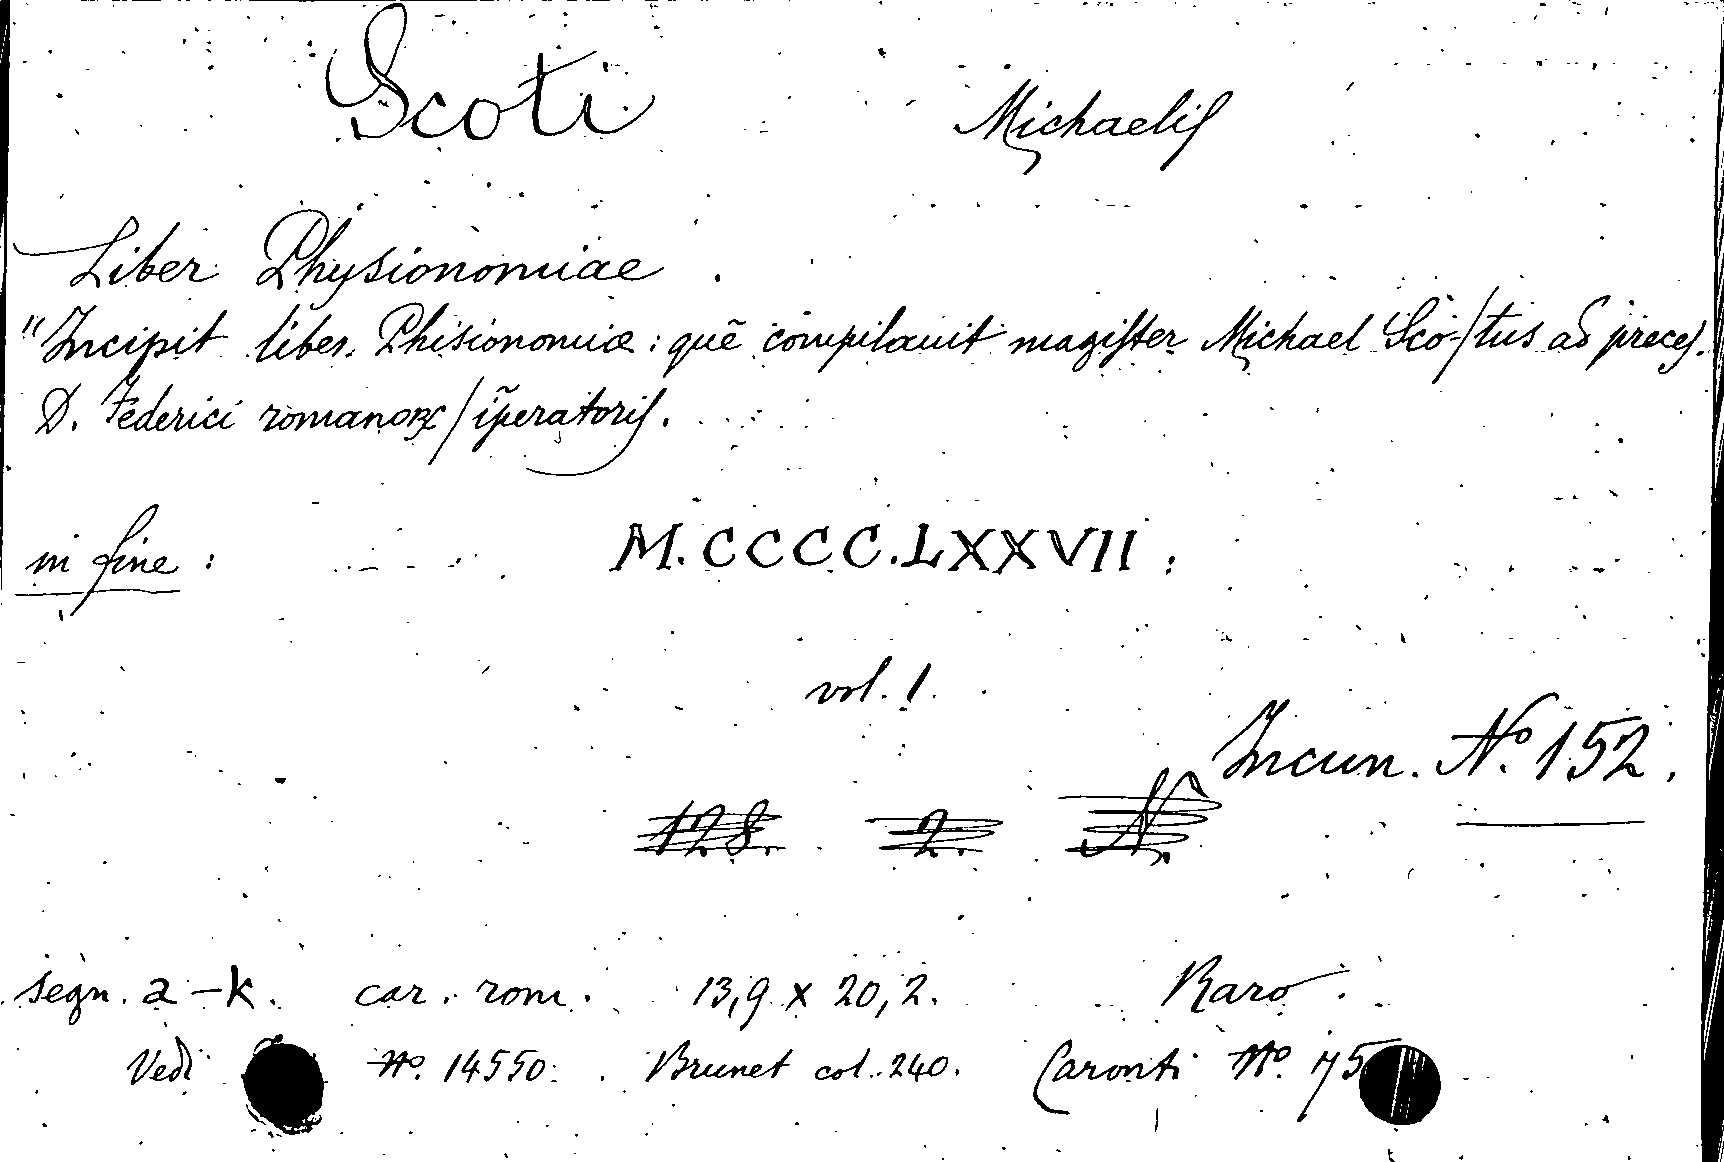 Scoti Michaelis
Liber Physionomiae .
"Incipit liber Phisionomiæ : quē compilauit magister Michael Sco-/tus ad preces
D. Federici romanoꝝ / iperatoris.
in fine : M.CCCC.LXXVII .
vol. 1.
Incun. Nº 152.
128. 2. N.
segn. a-k. car. rom. 13,9 x 20,2. Raro .
Vedi Nº. 14550. Brunet col. 240. Caronti Nº. 75